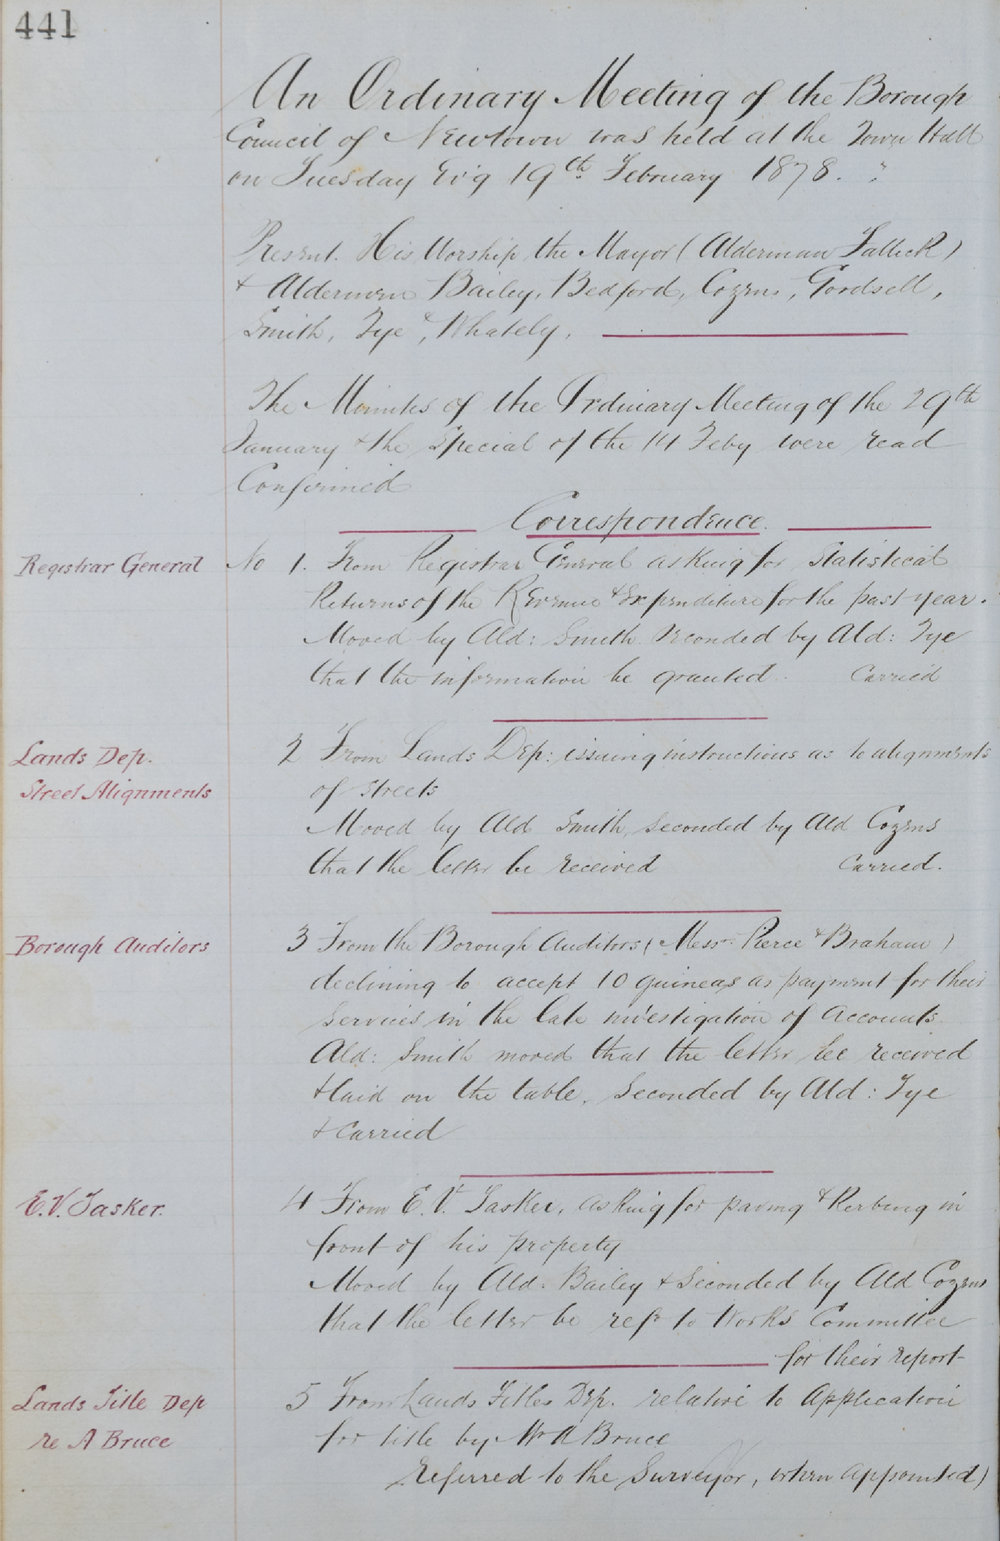 441
An Ordinary Meeting of the Borough
Council of Newtown was held at the Town Hall
on Tuesday Ev'g 19th February 1878.
Present. His Worship the Mayor (Alderman
& Aldermen Bailey, Bedford, Cozens, Goodsell,
Smith, Tye & Whately.
The Minutes of the Ordinary Meeting of the 29th
January & the Special of the 14 Feby were read
Confirmed
Correspondence.
Registrar General
No 1. From Registrar General asking for Statistical
Returns of the Revenue & Expenditure for the past year.
Moved by Ald: Smith Seconded by Ald: Tye
that the information be granted. Carried
Lands Dep.
Street Alignments
2 From Lands Dep: issuing instructions as to alignments
of Streets
Moved by Ald Smith, seconded by Ald Cozens
that the letter be received Carried.
Borough Auditors
3 From the Borough Auditors (Messrs Pierce & Braham)
declining to accept 10 guineas as payment for their
services in the late investigation of accounts.
Ald: Smith moved that the letter be received
& laid on the table. Seconded by Ald: Tye
& Carried
E. V. Tasker.
4 From E. V. Tasker, asking for paving & Kerbing in
front of his property
Moved by Ald. Bailey & Seconded by Ald Cozens
that the letter be refr to Works Committee
for their report
Lands Title Dep
re A Bruce
5 From Lands Titles Dep. relative to Application
for title by A Bruce
Referred to the Surveyor, when appointed)